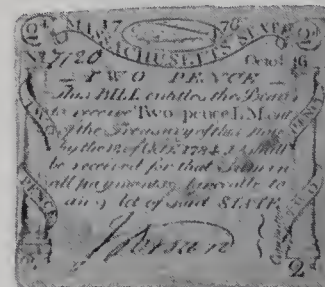 2d 17 76 2d
MASSACHUSETTS STATE
7120 Octob. 16
TWO PENCE
This BILL entitles the Bearer
to receive Two pence L. M. out
of the Treasury of this State
by the of Oct. 1784 & shall
be received for that Sum in
all payments agreeable to
an Act of said STATE
TWO
PENCE
PENCE
TWO
2d